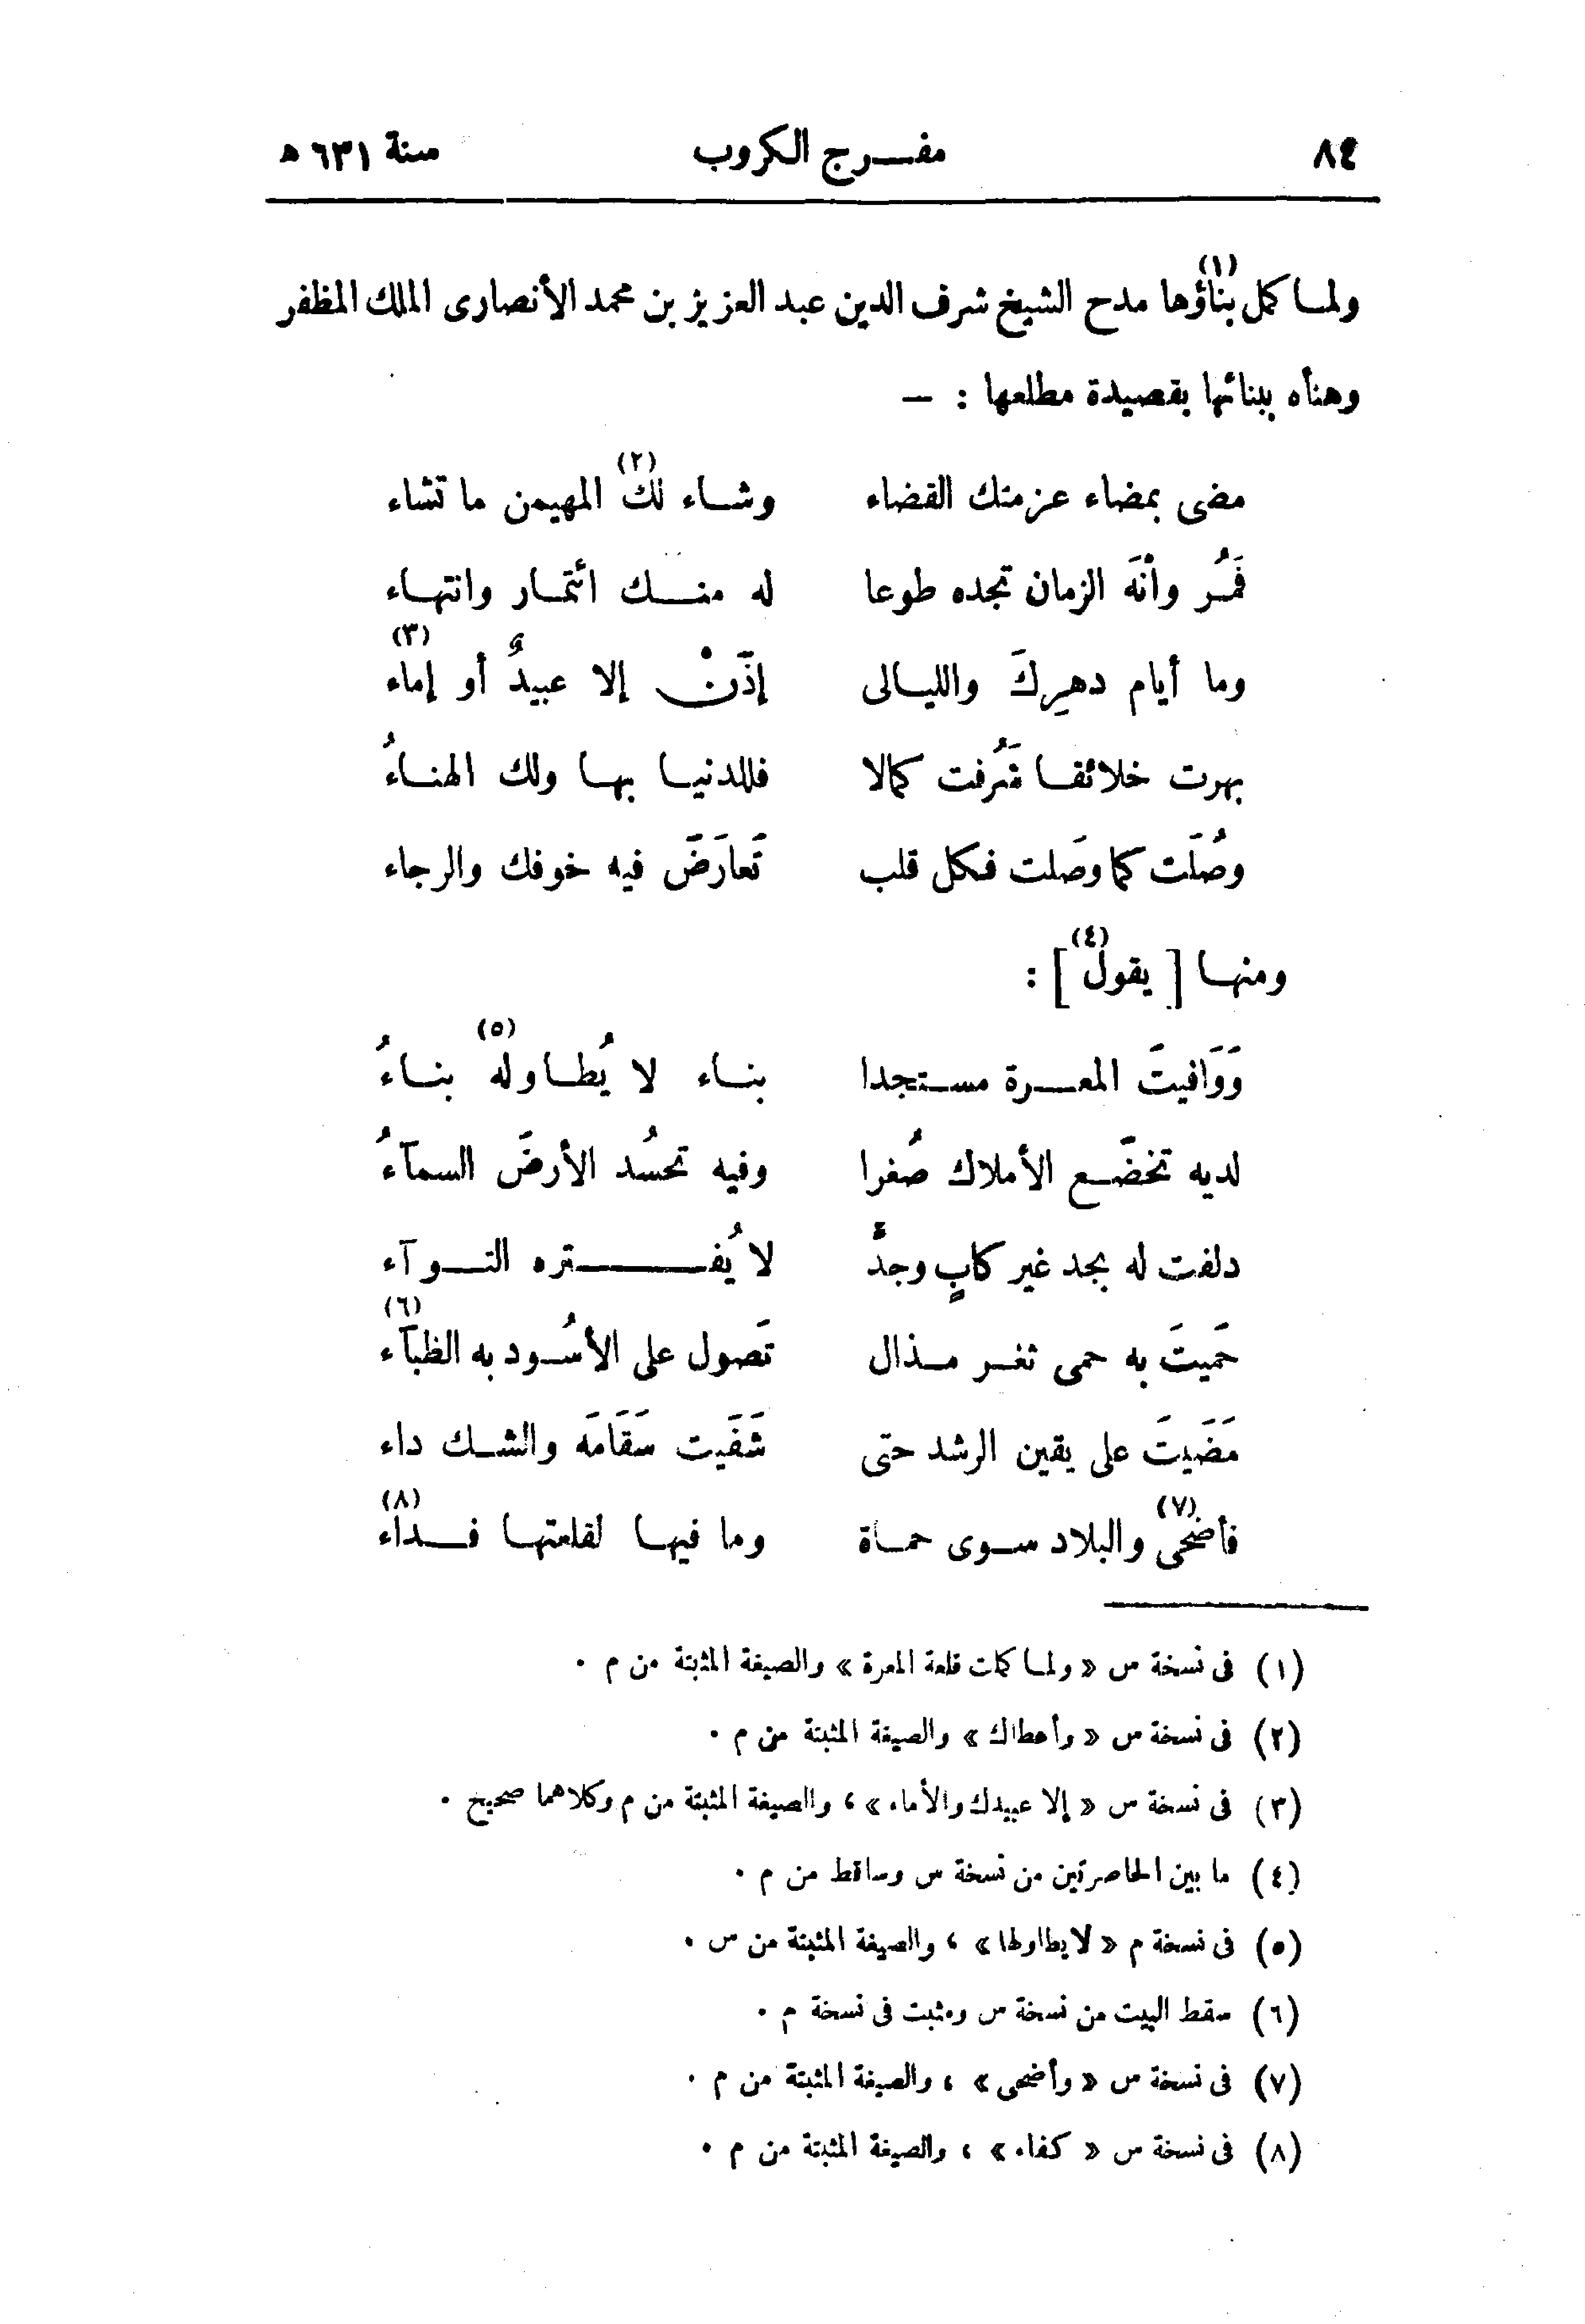 ٨٤ مفرج الكروب سنة ٦٣١ هـ
ولما كمل بناؤها (١) مدح الشيخ شرف الدين عبد العزيز بن محمد الأنصارى الملك المظفر
وهنأه ببنائها بقصيدة مطلعها : —
مضى بمضاء عزمتك القضاء وشاء لك (٢) المهيمن ما تشاء
فَمُر وأنْهَ الزمان تجده طوعا له منك ائتمار وانتهاء
وما أيام دهرِكَ والليالى إذَنْ إلا عبيدٌ أو إماء (٣)
بهرت خلائقا شَرُفت كمالا فللدنيا بها ولك الهناءُ
وصُلَت كما وصَلت فكل قلب تَعارَضَ فيه خوفك والرجاء
ومنها [ يقول (٤) ] :
وَوَافيتَ المعرة مستجدا بناء لا يُطاوله (٥) بناءُ
لديه تخضَع الأملاك صُغرا وفيه تحسُد الأرضَ السمآءُ
دلفت له بجد غير كابٍ وجدٍّ لا يُفتره التوآء
حَميتَ به حمى ثغر مذال تَصول على الأسُود به الظبآء (٦)
مَضَيتَ على يقين الرشد حتى شَفَيت سَقَامَه والشك داء
فأضحى (٧) والبلاد سوى حماة وما فيها لقلعتها فداء (٨)
(١) فى نسخة س « ولما كملت قلعة المعرة » والصيغة المثبتة من م .
(٢) فى نسخة س « وأعطاك » والصيغة المثبتة من م .
(٣) فى نسخة س « إلا عبيدك والأماء » ، والصيغة المثبتة من م وكلاهما صحيح .
(٤) ما بين الحاصرتين من نسخة س وساقط من م .
(٥) فى نسخة م « لا يطاولها » ، والصيغة المثبتة من س .
(٦) سقط البيت من نسخة س ومثبت فى نسخة م .
(٧) فى نسخة س « وأضحى » ، والصيغة المثبتة من م .
(٨) فى نسخة س « كفاء » ، والصيغة المثبتة من م .